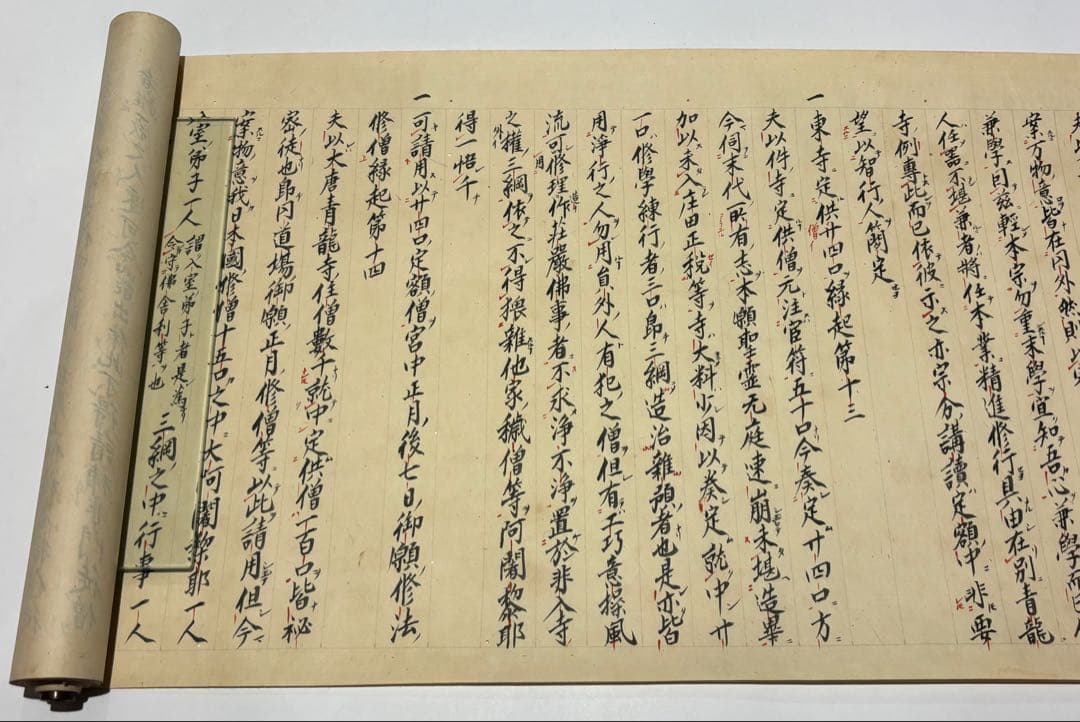 案万物意皆在内外然則此
兼學曰茲輕本宗勿重末學宜知吾心兼學而已
人任器不堪兼者將任本業精進修行具由在別青龍
寺例專此而已依彼示之亦宗分講讀定額中非要
望以智行人簡定
一東寺定供僧廿四口縁起第十三
夫以件寺定供僧元注官符五十口今奏定廿四口方
今伺末代所有志本願聖霊无庭速崩未堪造畢
加以未入庄田正税等寺大料少因以奏定就中廿
一口修學練行者三口即三綱造治雜預者也是亦皆
用淨行之人勿用自外人有犯之僧但有工巧意操風
流可修理作莊嚴佛事者不求淨不淨置於非入寺
之外攉三綱依之不得猥雜他家穢僧等阿闍梨耶
得一悟千
一可請用以廿四口定額僧宮中正月後七日御願修法
修僧縁起第十四
夫以大唐青龍寺住僧數千就中定供僧一百口皆祕
密徒也即内道場御願正月修僧等以此請用但今
案物意我日本國修僧十五口之中大阿闍梨耶一人
室弟子一人 謂入室弟子者是為 令宗佛舎利等也 三綱之中行事一人